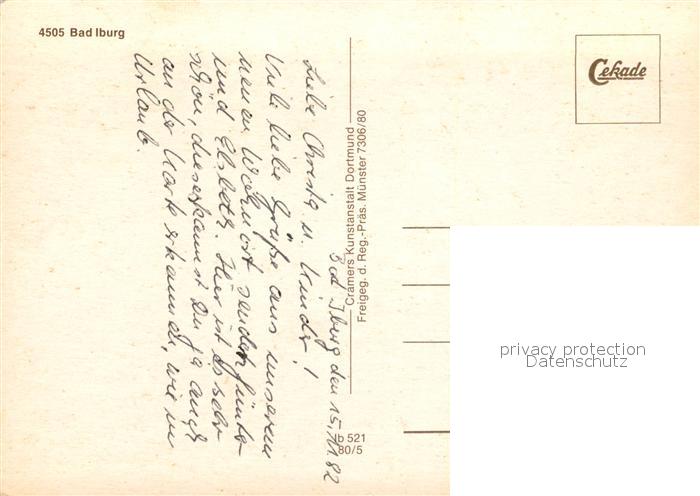 4505 Bad Iburg
Cekade
Bad Iburg den 15.11.82
Liebe Christa u. Kinder!
Viele liebe Grüße aus unserem
neuen Wohnort senden Günter
und Elsbeth. Hier ist es sehr
schön, dieses kannst Du ja auch
an der Karte erkennen, wie im
Urlaub.
Cramers Kunstanstalt Dortmund
Freigeg. d. Reg.-Präs. Münster 7306/80
Ib 521
80/5
privacy protection
Datenschutz